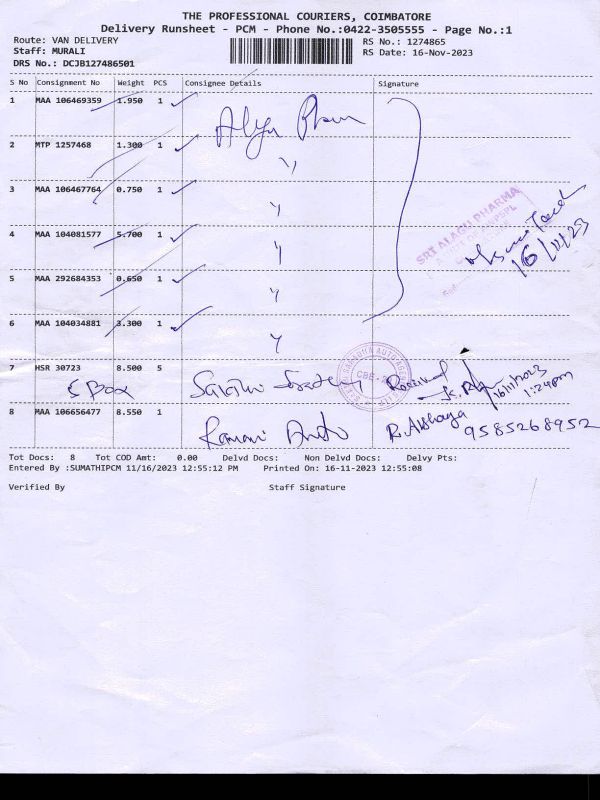 THE PROFESSIONAL COURIERS, COIMBATORE
Delivery Runsheet - PCM - Phone No.:0422-3505555 - Page No.:1
Route: VAN DELIVERY
Staff: MURALI
DRS No.: DCJB127486501
RS No.: 1274865
RS Date: 16-Nov-2023
S No Consignment No Weight PCS Consignee Details Signature
1 MAA 106469359 1.950 1
2 MTP 1257468 1.300 1
3 MAA 106467764 0.750 1
SRI ALAGU PHARMA
16/11/23
4 MAA 104081577 5.700 1
5 MAA 292684353 0.650 1
6 MAA 104034881 3.300 1
7 HSR 30723 8.500 5
5 Box
Received
16/11/2023
1:24pm
8 MAA 106656477 8.550 1
R. Abhaya
9585268952
Tot Docs: 8 Tot COD Amt: 0.00 Delvd Docs: Non Delvd Docs: Delvy Pts:
Entered By :SUMATHIPCM 11/16/2023 12:55:12 PM Printed On: 16-11-2023 12:55:08
Verified By Staff Signature